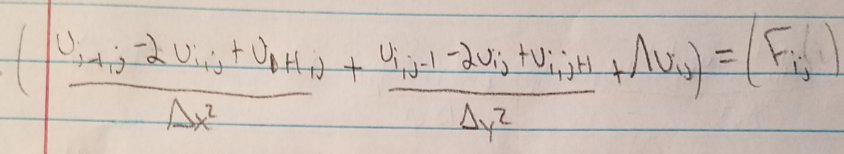 ( U_{i-1,j} - 2U_{i,j} + U_{i+1,j} / Δx² + U_{i,j-1} - 2U_{ij} + U_{i,j+1} / Δy² + ΛU_{ij} ) = ( F_{ij} )